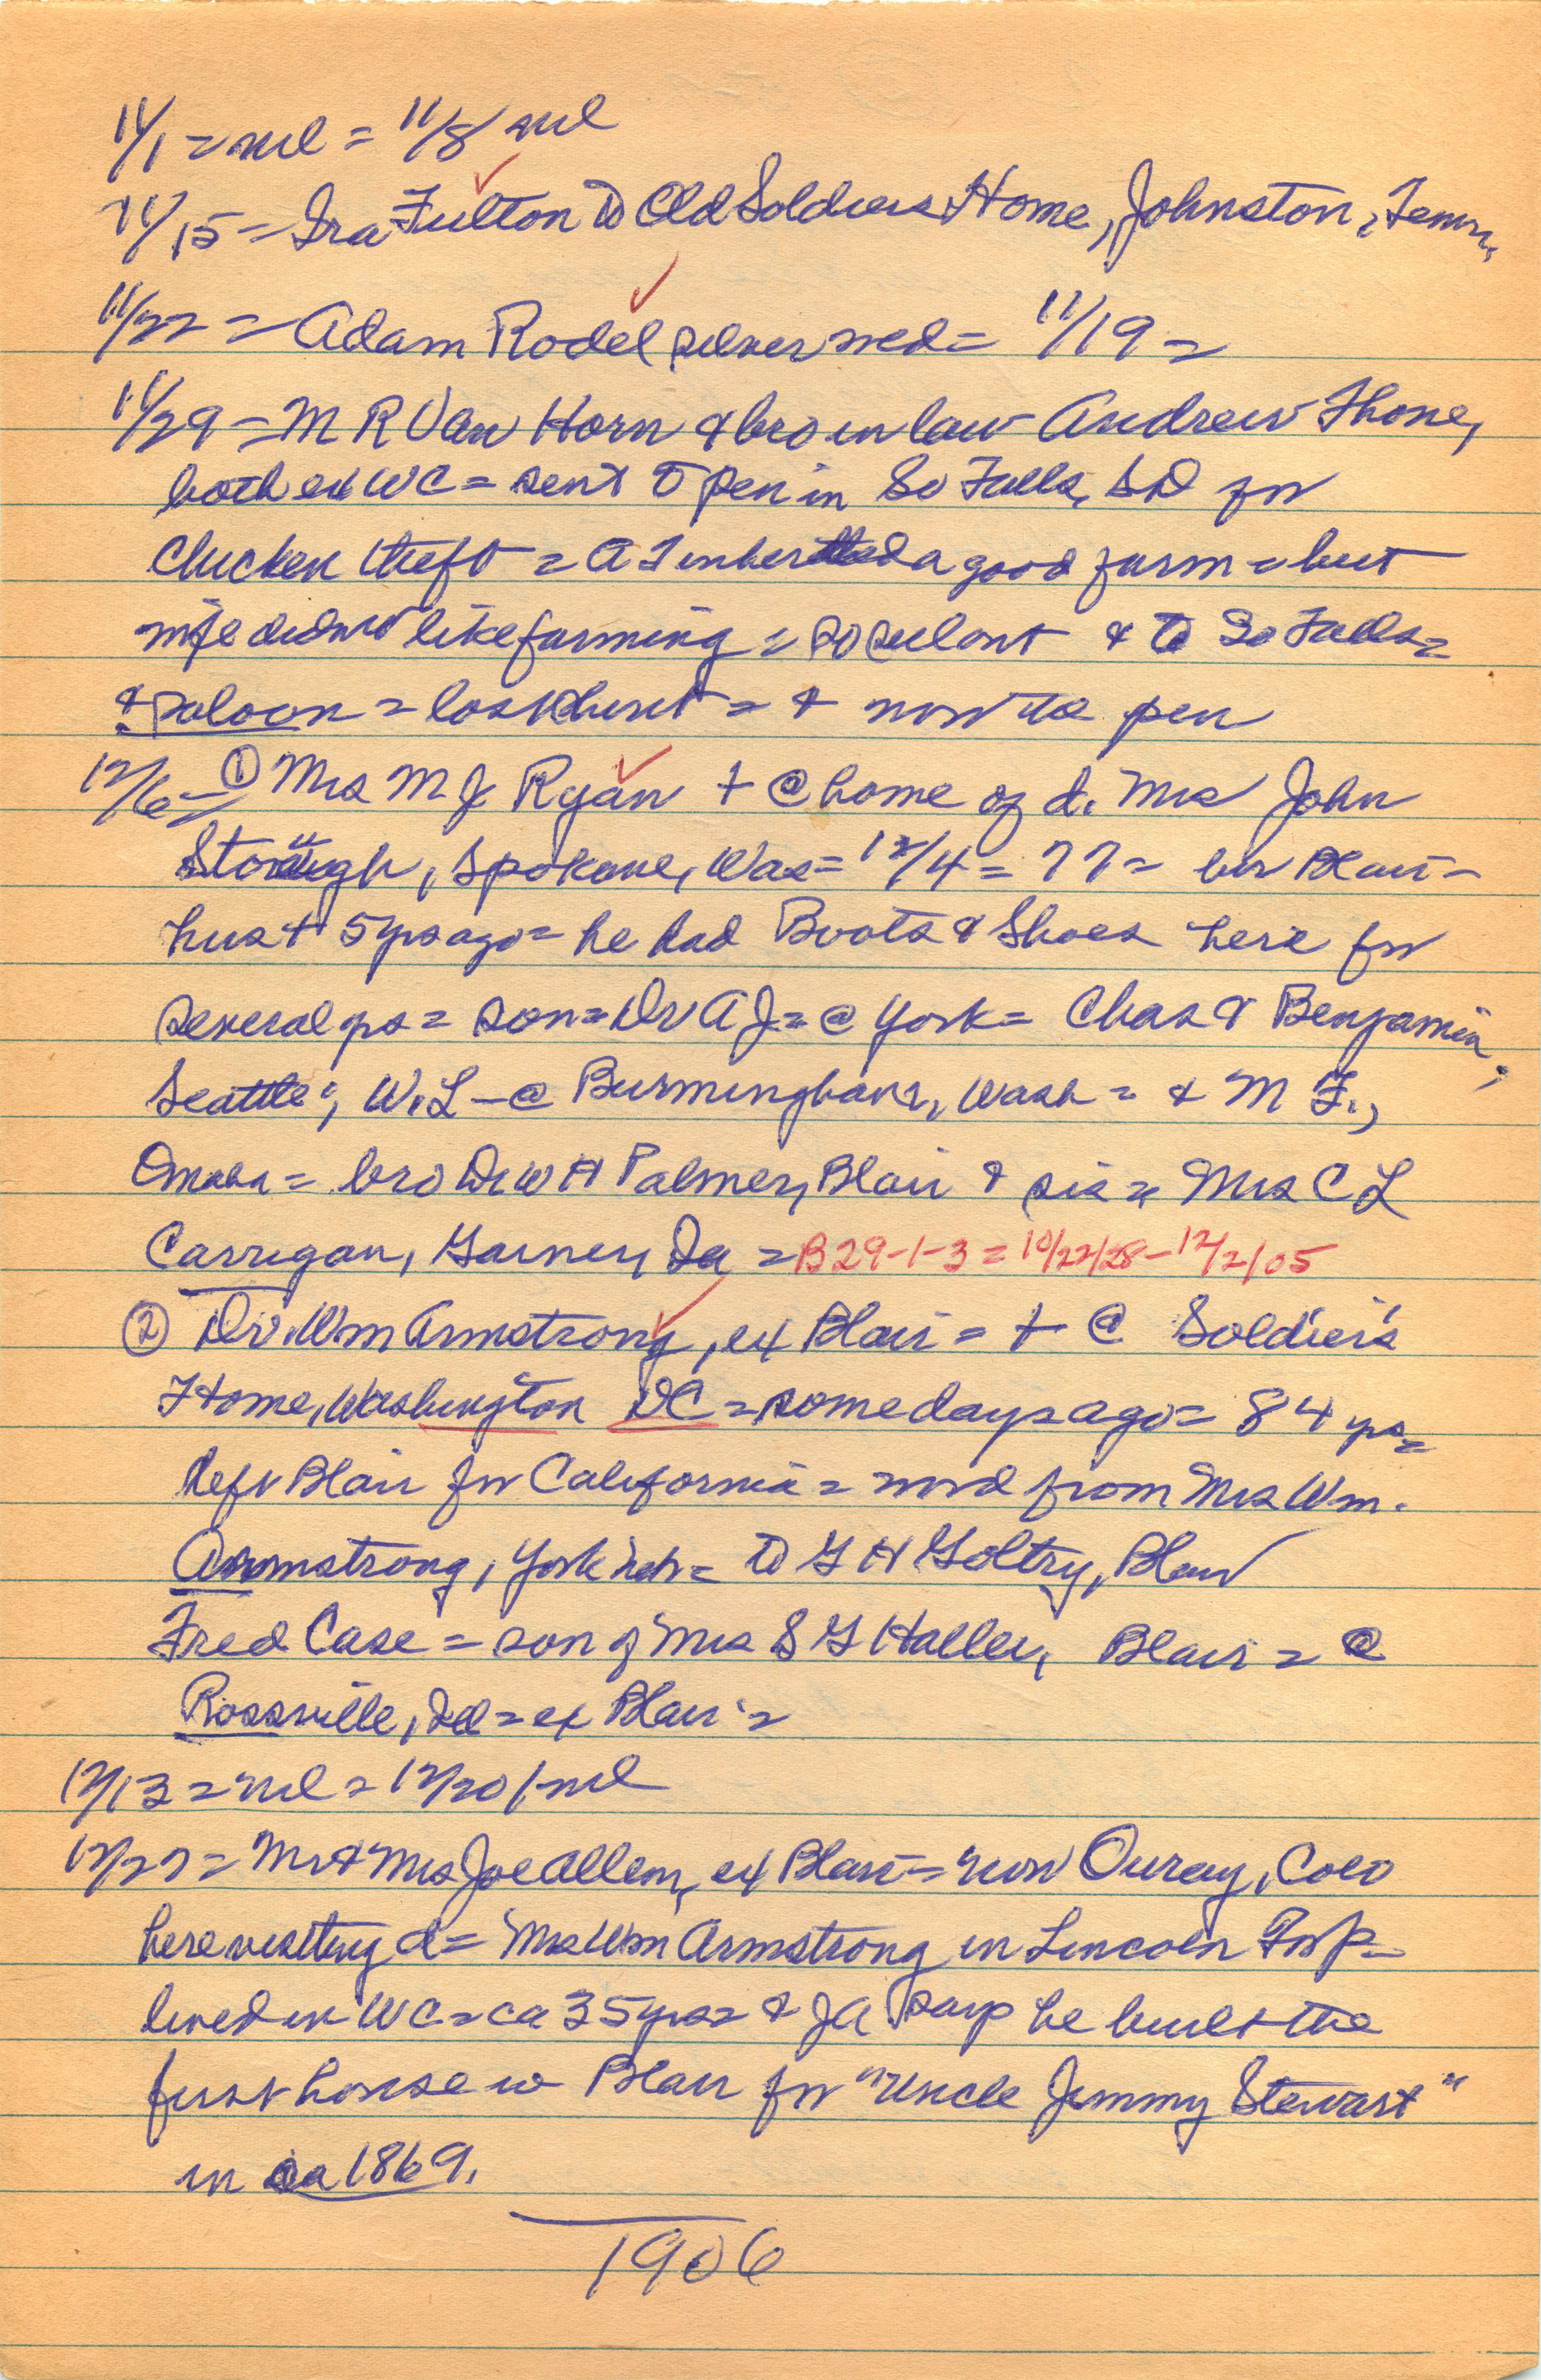 11/1 = nil = 11/8 nil
11/15 = Ira Fulton to Old Soldiers Home, Johnston, Tenn,
11/22 = Adam Rodel silver wed = 11/19 =
11/29 = M R Van Horn & bro in law Andrew Thone,
both ex WC = sent to pen in So Falls, SD for
chicken theft = A T inherited a good farm = but
wife didn't like farming = so sel out & to So Falls =
& saloon = lost = & now to pen
12/6 = ① Mrs M J Ryan † @ home of d. Mrs John
Spokane, Was = 12/4 = 77 = Blair =
hus † 5 yrs ago = he had Boots & Shoes here for
several yrs = son = Dr A J = @ York = Chas & Benjamin,
Seattle; W.L - @ Burmingham, Wash = & M F.,
Omaha = bro Dr W H Palmer, Blair & sis = Mrs C L
Carrigan, Garner, Ia = B29-1-3 = 10/22/28 - 12/2/05
② Dr. Wm Armstrong, ex Blair = † @ Soldier's
Home, Washington DC = some days ago = 84 yrs =
left Blair for California = word from Mrs Wm.
Armstrong, York Neb = to G H Goltry, Blair
Fred Case = son of Mrs S G Haller, Blair = @
Rossville, Ill = ex Blair =
12/13 = nil = 12/20 / nil
12/27 = Mr & Mrs Joe Allen, ex Blair = now Ouray, Colo
here visiting d = Mrs Wm Armstrong in Lincoln Twp =
lived in WC = ca 35 yrs = & JA says he built the
first house in Blair for "Uncle Jimmy Stewart"
in ca 1869.
1906